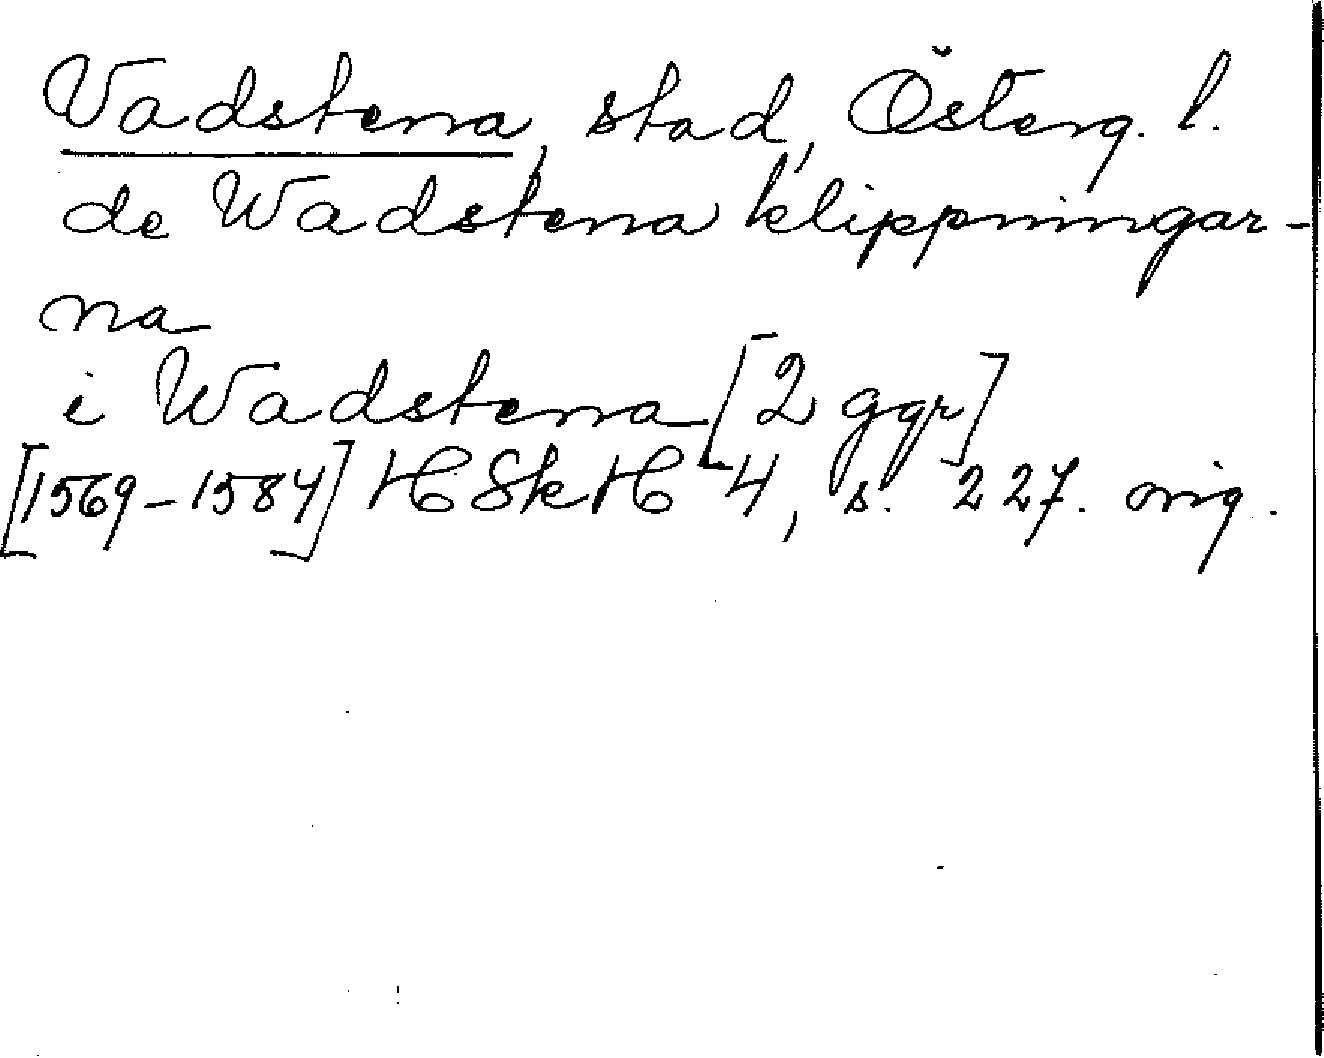 Vadstena, stad, Österg. l.
de Wadstena klippningar-
na
i Wadstena [2 ggr]
[1569-1584] HSkH 4, s. 227. orig.